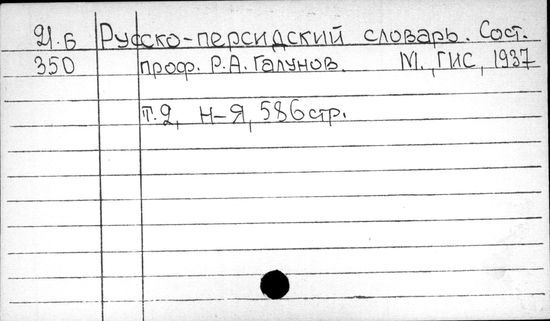 21.Б Русско-персидский словарь. Сост.
350 проф. Р.А. Галунов. М., ГИС, 1937
т.2, Н-Я, 586 стр.